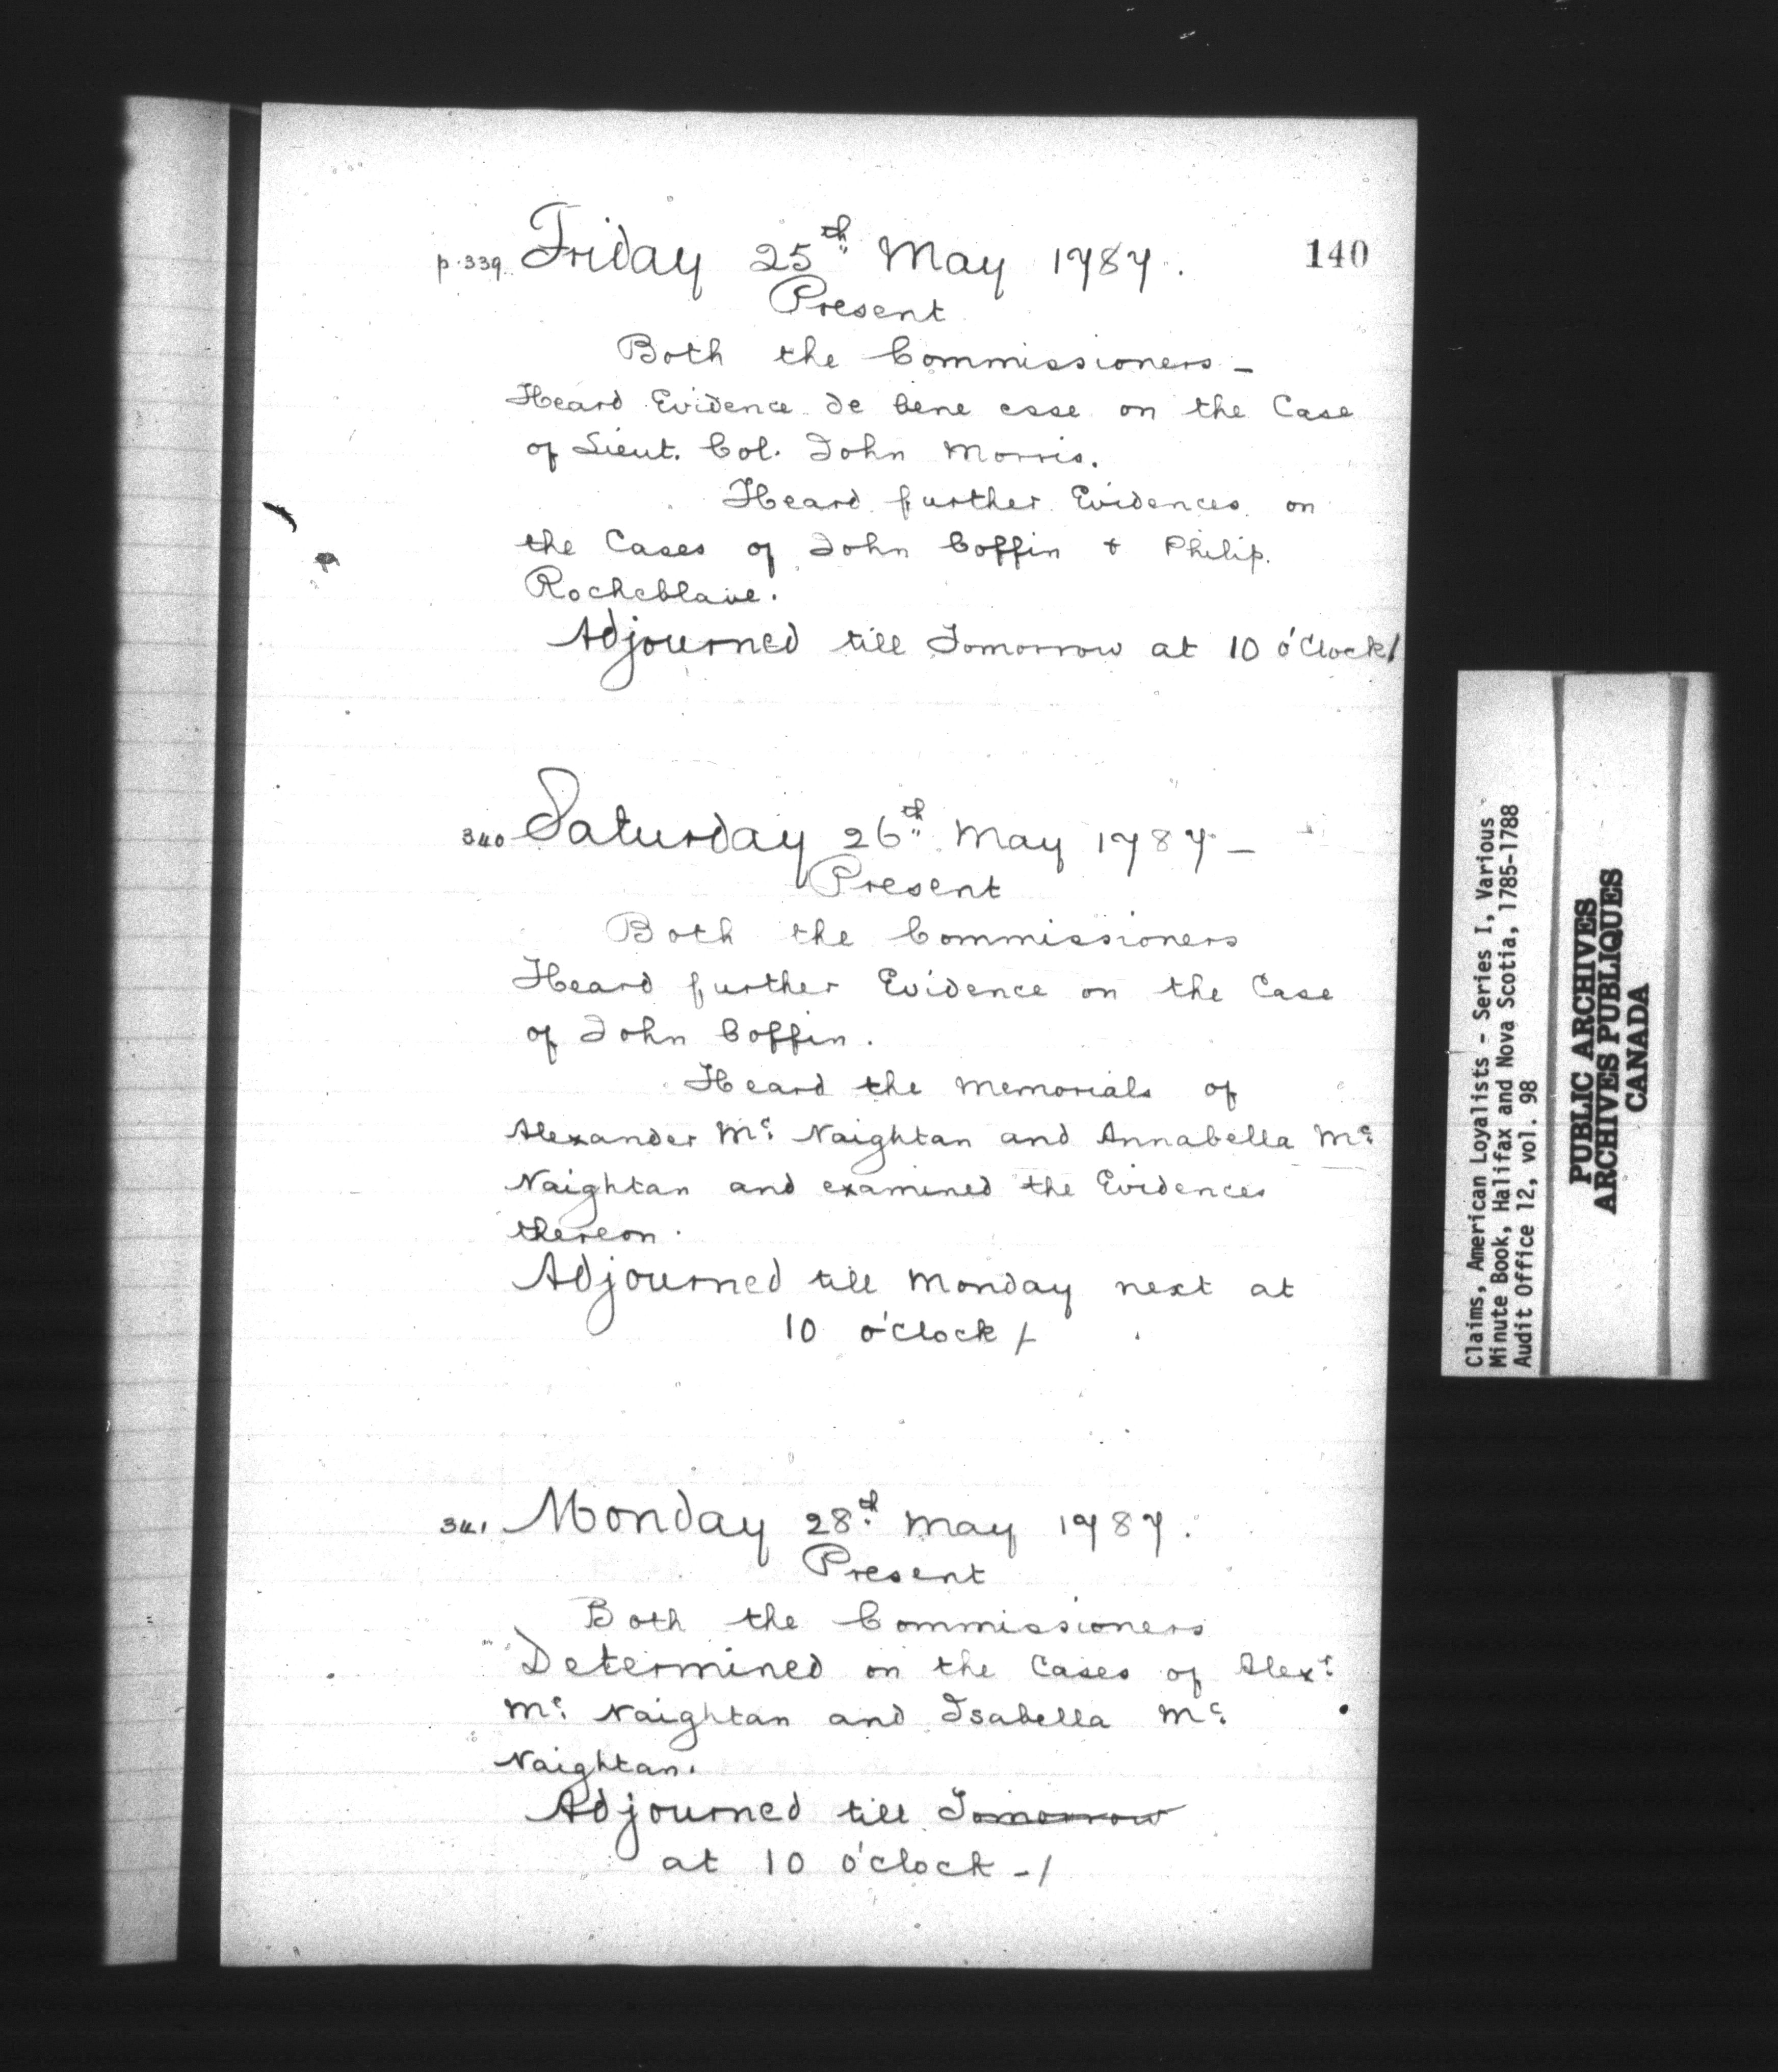 140
p. 339. Friday 25th May 1787.
Present
Both the Commissioners -
Heard Evidence de bene esse on the Case
of Lieut. Col. John Morris.
Heard further Evidences on
the Cases of John Coffin & Philip
Rocheblave.
Adjourned till Tomorrow at 10 o'Clock/
340 Saturday 26th May 1787 -
Present
Both the Commissioners
Heard further Evidence on the Case
of John Coffin.
Heard the Memorials of
Alexander Mc Naightan and Annabella Mc
Naightan and examined the Evidences
thereon.
Adjourned till Monday next at
10 o'clock /
341 Monday 28th May 1787.
Present
Both the Commissioners
Determined on the Cases of Alexr
Mc Naightan and Isabella Mc
Naightan.
Adjourned till Tomorrow
at 10 o'clock -/
Claims, American Loyalists - Series I, Various
Minute Book, Halifax and Nova Scotia, 1785-1788
Audit Office 12, vol. 98
PUBLIC ARCHIVES
ARCHIVES PUBLIQUES
CANADA